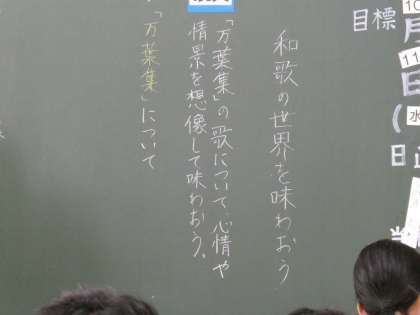 10
月
11
日
(水
日
目標
和歌の世界を味わおう
「万葉集」の歌について、心情や
情景を想像して味わおう。
「万葉集」について